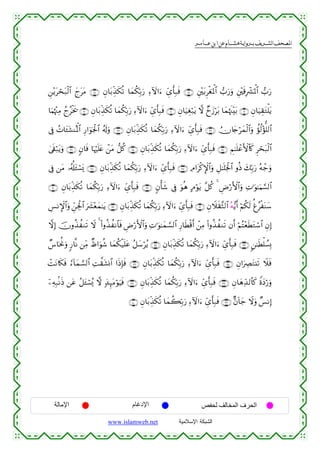 المصحف الشريف برواية هشام عن ابن عامر
رَبُّ ٱلْمَشْرِقَيْنِ وَرَبُّ ٱلْمَغْرِبَيْنِ ۝ فَبِأَىِّ ءَالَآءِ رَبِّكُمَا تُكَذِّبَانِ ۝ مَرَجَ ٱلْبَحْرَيْنِ
يَلْتَقِيَانِ ۝ بَيْنَهُمَا بَرْزَخٌ لَّا يَبْغِيَانِ ۝ فَبِأَىِّ ءَالَآءِ رَبِّكُمَا تُكَذِّبَانِ ۝ يَخْرُجُ مِنْهُمَا
ٱللُّؤْلُؤُ وَٱلْمَرْجَانُ ۝ فَبِأَىِّ ءَالَآءِ رَبِّكُمَا تُكَذِّبَانِ ۝ وَلَهُ ٱلْجَوَارِ ٱلْمُنشَـَٔاتُ فِى
ٱلْبَحْرِ كَٱلْأَعْلَـٰمِ ۝ فَبِأَىِّ ءَالَآءِ رَبِّكُمَا تُكَذِّبَانِ ۝ كُلُّ مَنْ عَلَيْهَا فَانٍ ۝ وَيَبْقَىٰ
وَجْهُ رَبِّكَ ذُو ٱلْجَلَـٰلِ وَٱلْإِكْرَامِ ۝ فَبِأَىِّ ءَالَآءِ رَبِّكُمَا تُكَذِّبَانِ ۝ يَسْـَٔلُهُۥ مَن فِى
ٱلسَّمَـٰوَٰتِ وَٱلْأَرْضِ ۚ كُلَّ يَوْمٍ هُوَ فِى شَأْنٍ ۝ فَبِأَىِّ ءَالَآءِ رَبِّكُمَا تُكَذِّبَانِ ۝
سَنَفْرُغُ لَكُمْ أَيُّهَ ٱلثَّقَلَانِ ۝ فَبِأَىِّ ءَالَآءِ رَبِّكُمَا تُكَذِّبَانِ ۝ يَـٰمَعْشَرَ ٱلْجِنِّ وَٱلْإِنسِ
إِنِ ٱسْتَطَعْتُمْ أَن تَنفُذُوا۟ مِنْ أَقْطَارِ ٱلسَّمَـٰوَٰتِ وَٱلْأَرْضِ فَٱنفُذُوا۟ ۚ لَا تَنفُذُونَ إِلَّا
بِسُلْطَـٰنٍ ۝ فَبِأَىِّ ءَالَآءِ رَبِّكُمَا تُكَذِّبَانِ ۝ يُرْسَلُ عَلَيْكُمَا شُوَاظٌ مِّن نَّارٍ وَنُحَاسٌ
فَلَا تَنتَصِرَانِ ۝ فَبِأَىِّ ءَالَآءِ رَبِّكُمَا تُكَذِّبَانِ ۝ فَإِذَا ٱنشَقَّتِ ٱلسَّمَآءُ فَكَانَتْ
وَرْدَةً كَٱلدِّهَانِ ۝ فَبِأَىِّ ءَالَآءِ رَبِّكُمَا تُكَذِّبَانِ ۝ فَيَوْمَئِذٍ لَّا يُسْـَٔلُ عَن ذَنۢبِهِۦٓ
إِنسٌ وَلَا جَآنٌّ ۝ فَبِأَىِّ ءَالَآءِ رَبِّكُمَا تُكَذِّبَانِ ۝
الحرف المخالف لحفص الإدغام الإمالة
الشبكة الإسلامية www.islamweb.net